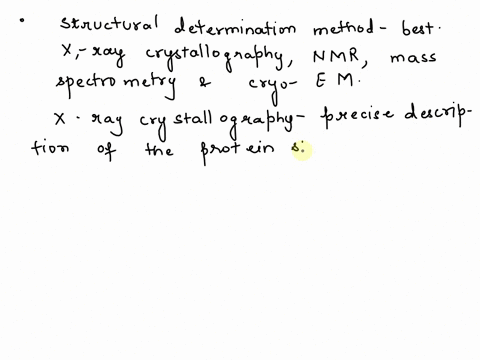 • structural determination method - best.
X,-ray crystallography, NMR, mass
spectrometry & cryo- EM.
X-ray crystallography- precise descrip-
tion of the protein s